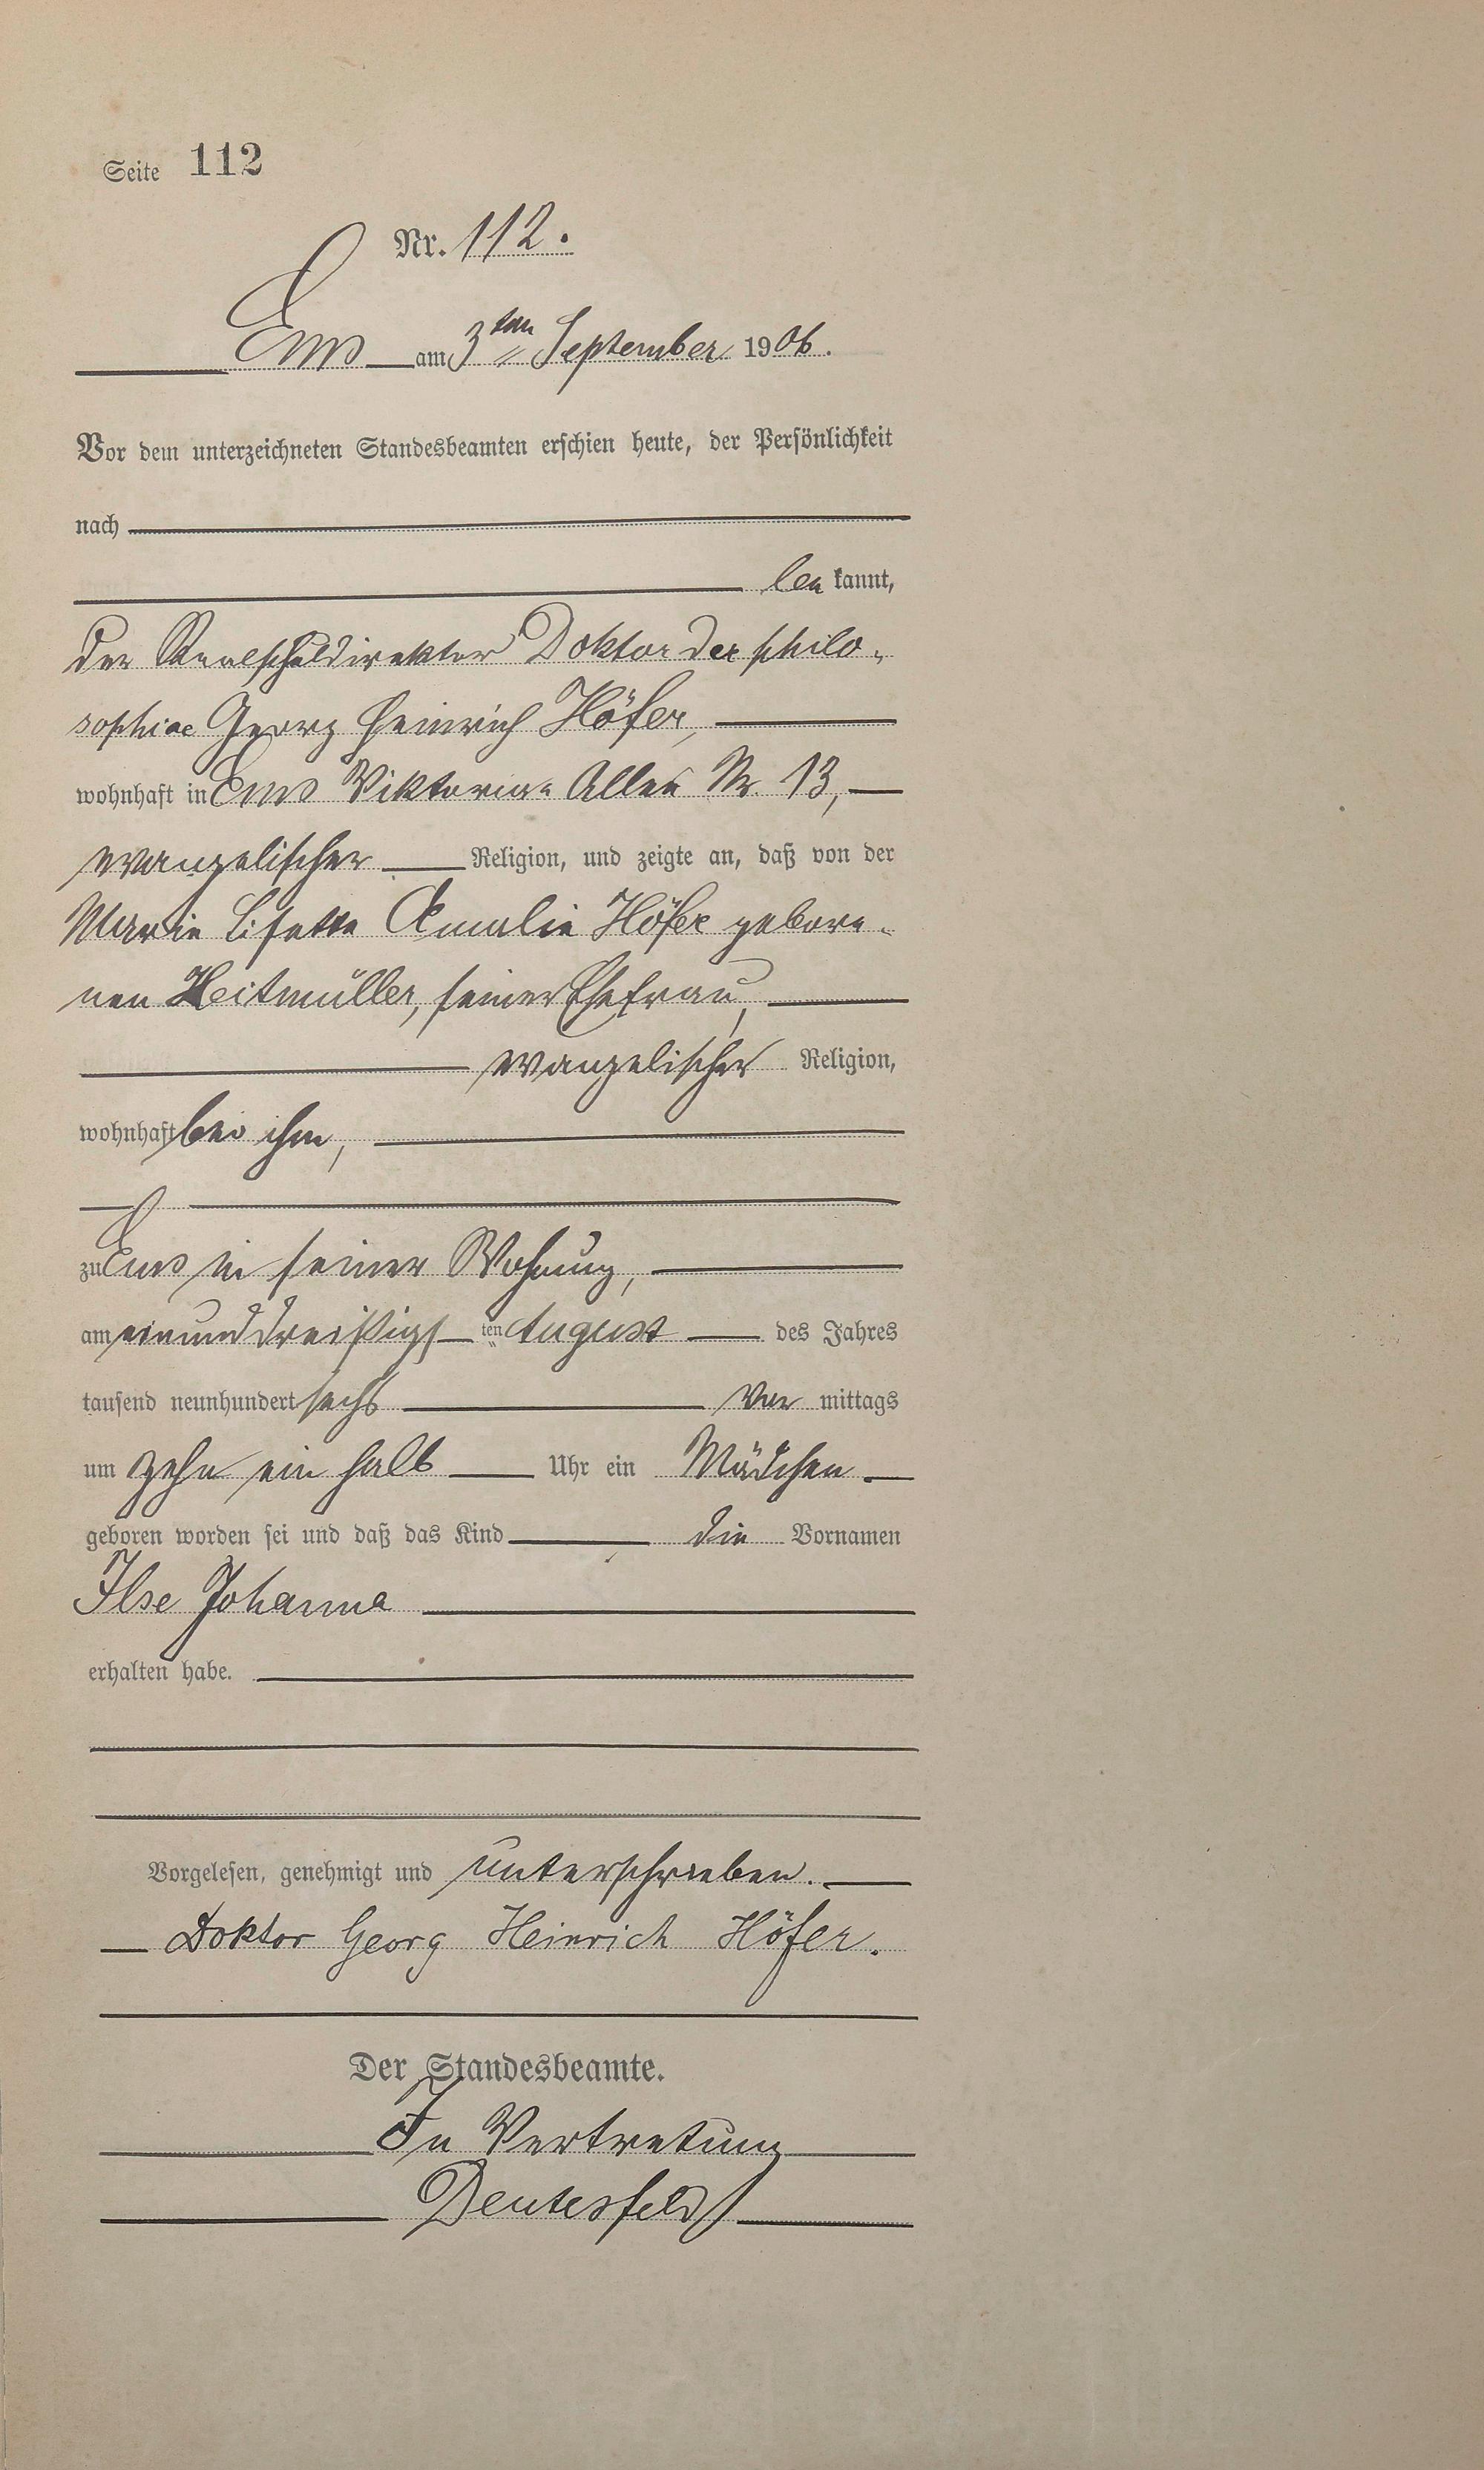 Seite 112
Nr. 112.
Ems am 3ten September 1906.
Vor dem unterzeichneten Standesbeamten erschien heute, der Persönlichkeit
nach
bekannt,
der Realschuldirektor Doktor der philo-
sophiae Georg Heinrich Höfer,
wohnhaft in Ems Viktoria-Allee Nr. 13,
evangelischer Religion, und zeigte an, daß von der
Marie Lisette Amalie Höfer gebore-
nen Heitmüller, seiner Ehefrau,
evangelischer Religion,
wohnhaft bei ihm,
zu Ems in seiner Wohnung,
am einunddreißigsten August des Jahres
tausend neunhundert sechs Vor mittags
um zehn ein halb Uhr ein Mädchen
geboren worden sei und daß das Kind die Vornamen
Ilse Johanna
erhalten habe.
Vorgelesen, genehmigt und unterschrieben.
Doktor Georg Heinrich Höfer.
Der Standesbeamte.
In Vertretung
Deutesfeld